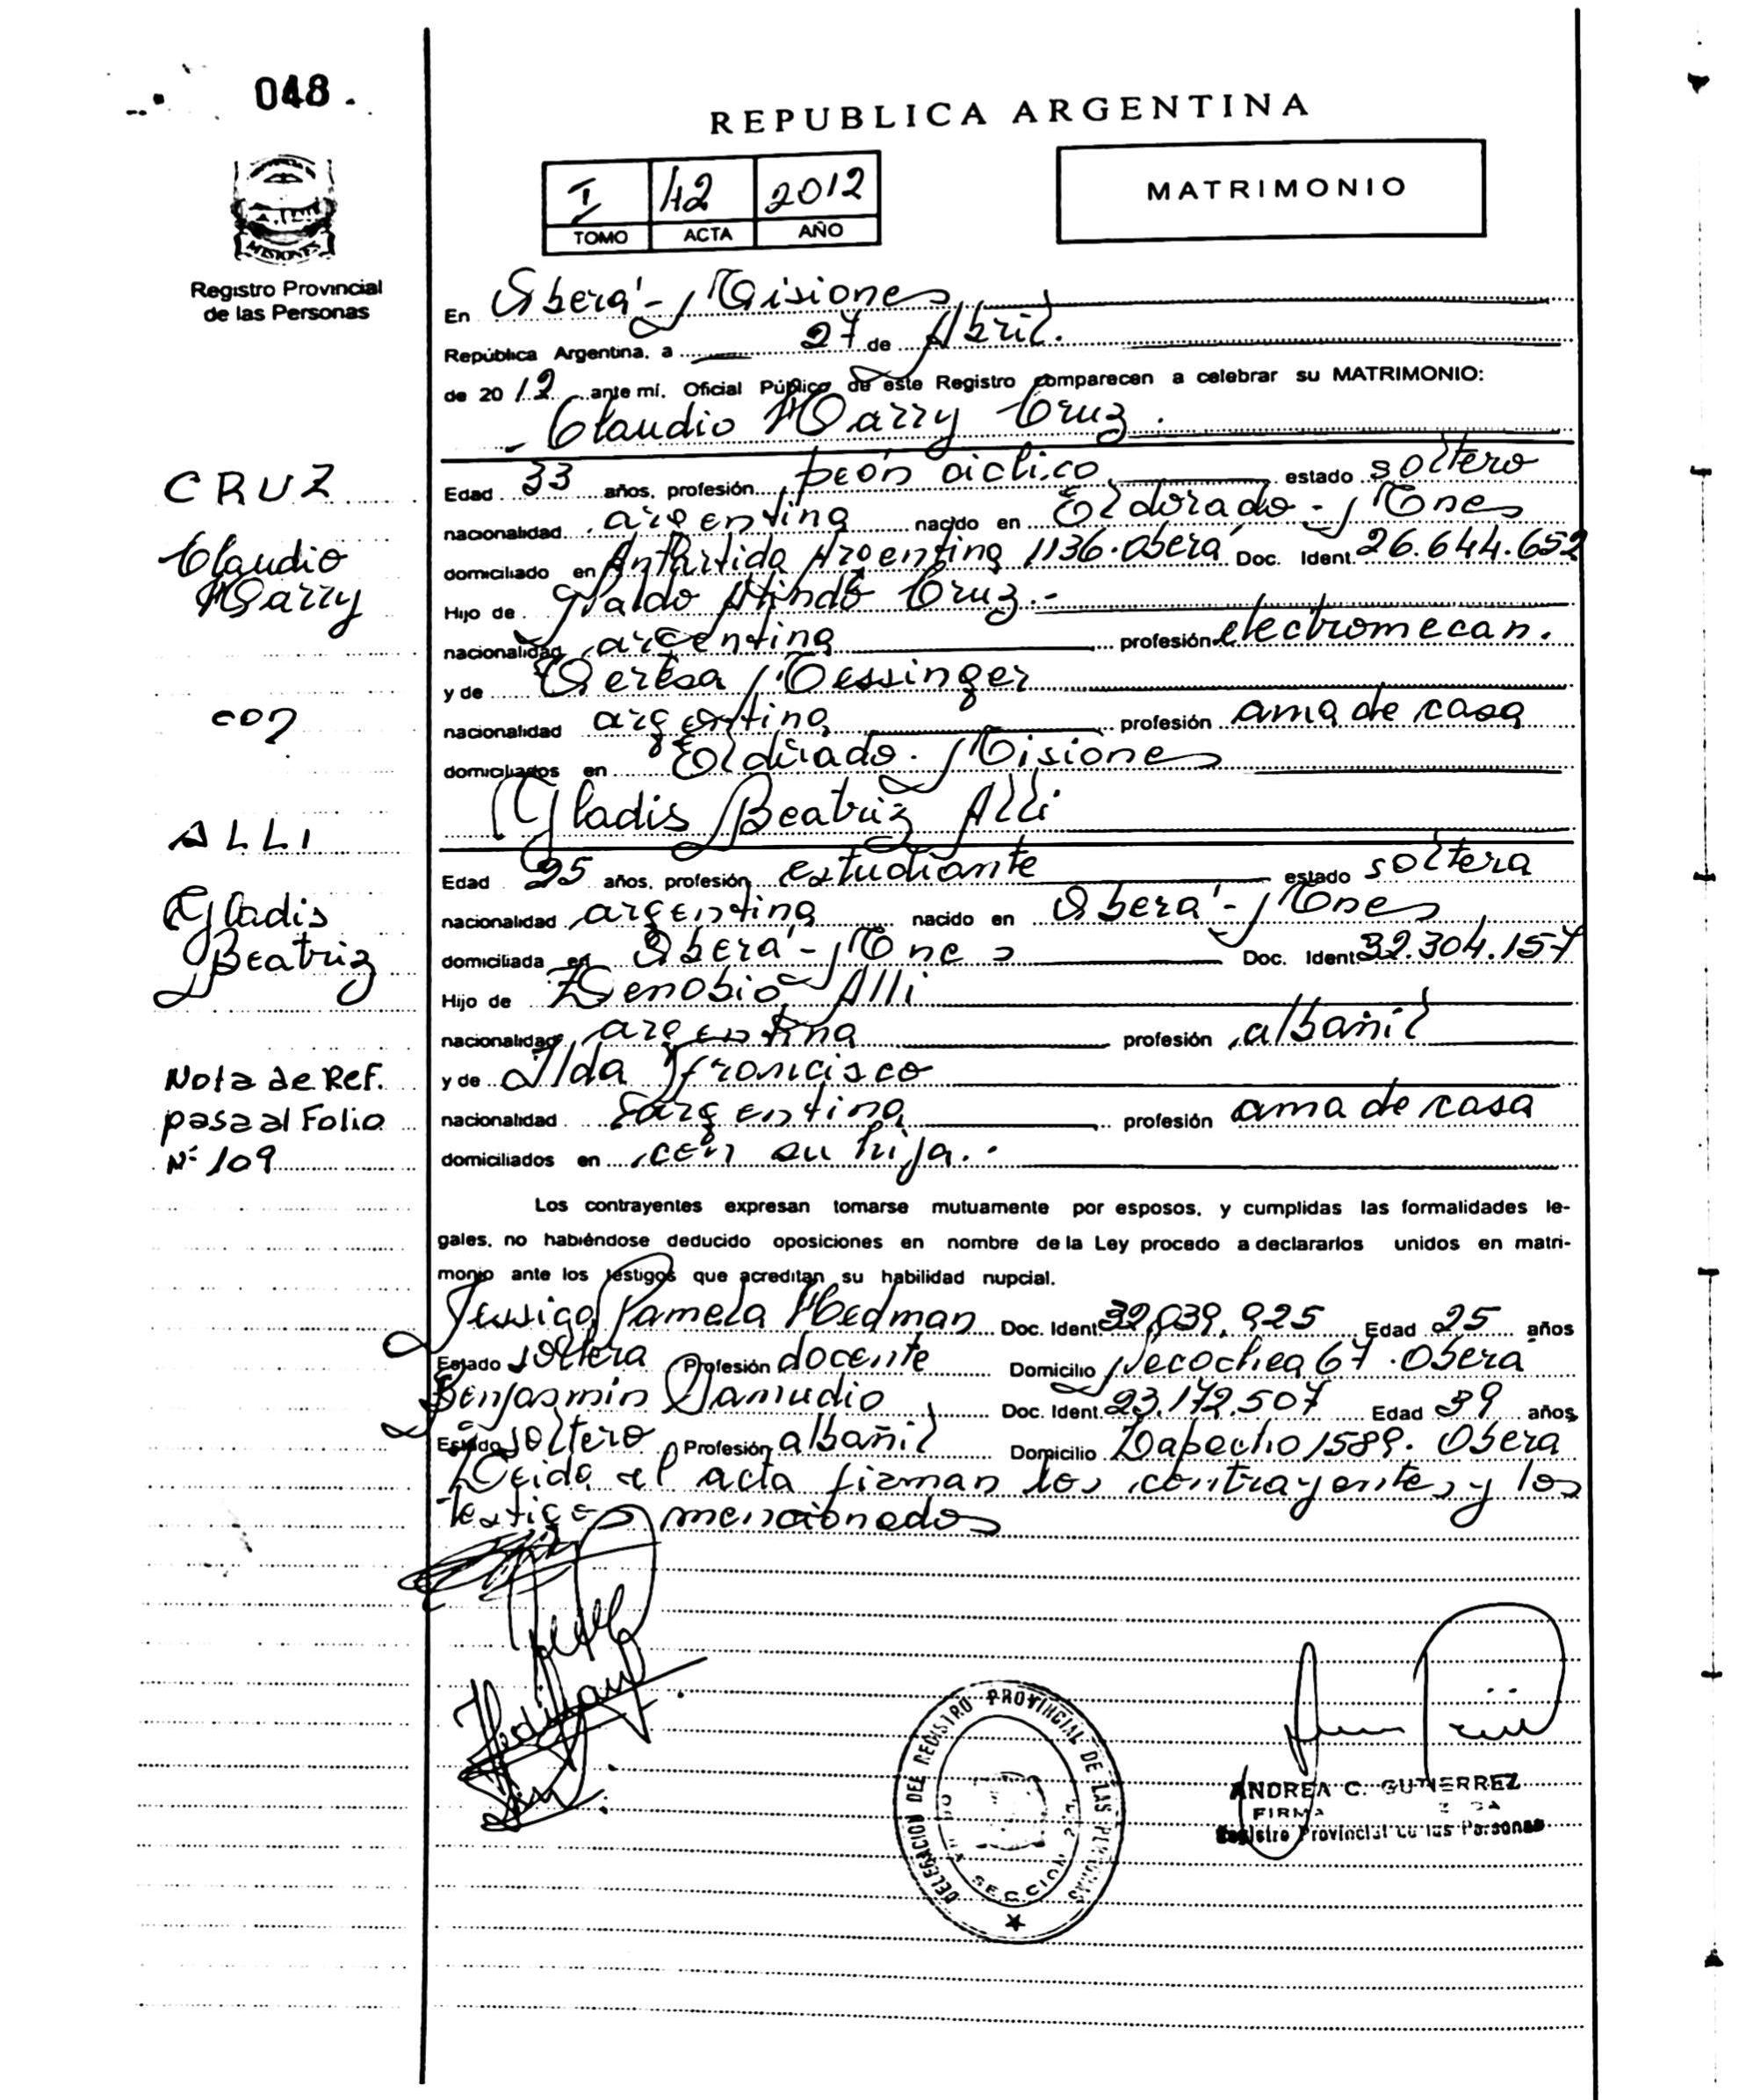 048.
REPUBLICA ARGENTINA
I 42 2012
TOMO ACTA AÑO
MATRIMONIO
MISIONES
Registro Provincial
de las Personas
En Oberá - Misiones
República Argentina, a 27 de Abril.
de 2012 ante mí, Oficial Público de este Registro comparecen a celebrar su MATRIMONIO:
Claudio Harry Cruz.
Edad 33 años, profesión peón cíclico estado soltero
nacionalidad argentina nacido en Eldorado - Mnes
domiciliado en Antártida Argentina 1136. Oberá Doc. Ident. 26.644.652
Hijo de Cruz.-
nacionalidad argentina profesión electromecan.
y de Teresa Messinger
nacionalidad argentina profesión ama de casa
domiciliados en Eldorado. Misiones
Gladis Beatriz Alli
Edad 25 años, profesión estudiante estado soltera
nacionalidad argentina nacido en Oberá - Mnes
domiciliada en Oberá - Mnes Doc. Ident. 32.304.157
Hijo de Zenobio Alli
nacionalidad argentina profesión albañil
y de Ilda Francisco
nacionalidad argentina profesión ama de casa
domiciliados en con su hija.
Los contrayentes expresan tomarse mutuamente por esposos, y cumplidas las formalidades le-
gales, no habiéndose deducido oposiciones en nombre de la Ley procedo a declararlos unidos en matri-
monio ante los testigos que acreditan su habilidad nupcial.
Jessica Pamela Hedman Doc. Ident 32.039.925 Edad 25 años
Estado soltera Profesión docente Domicilio Necochea 67. Oberá
Benjamín Samudio Doc. Ident. 23.172.507 Edad 39 años
Estado soltero Profesión albañil Domicilio 1589. Oberá
Leida el acta firman los contrayentes y los
testigos mencionados
CRUZ
Claudio
Harry
con
ALLI
Gladis
Beatriz
Nota de Ref.
pasa al Folio
Nº 109
DELEGACION DEL REGISTRO PROVINCIAL DE LAS PERSONAS
SECCION
ANDREA C. GUTIERREZ
FIRMA
Registro Provincial de las Personas